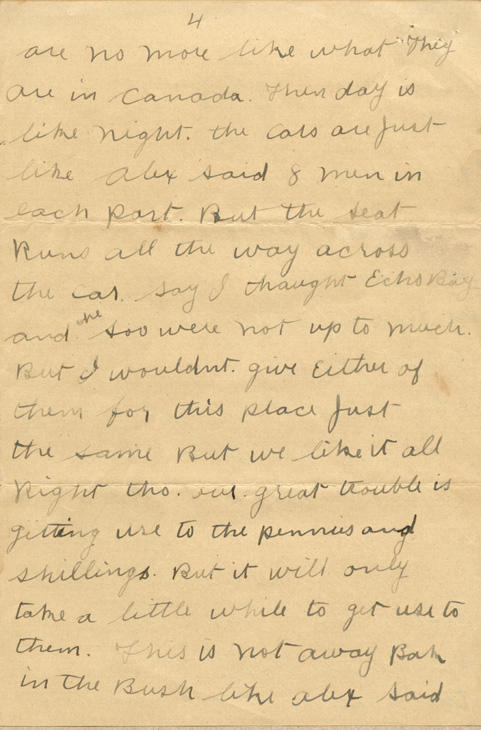 4
are no more like what They
are in Canada. Their day is
like night. the cars are Just
like Alex said 8 men in
each part. But the seat
Runs all the way across
the car. Say I thaught Echo Bay
and the Soo were not up to much.
But I wouldnt. give Either of
them for this place Just
the same But we like it all
Right tho. our great trouble is
gitting use to the pennies and
shillings. But it will only
take a little while to get use to
them. This is not away Bak
in the Bush like alex said